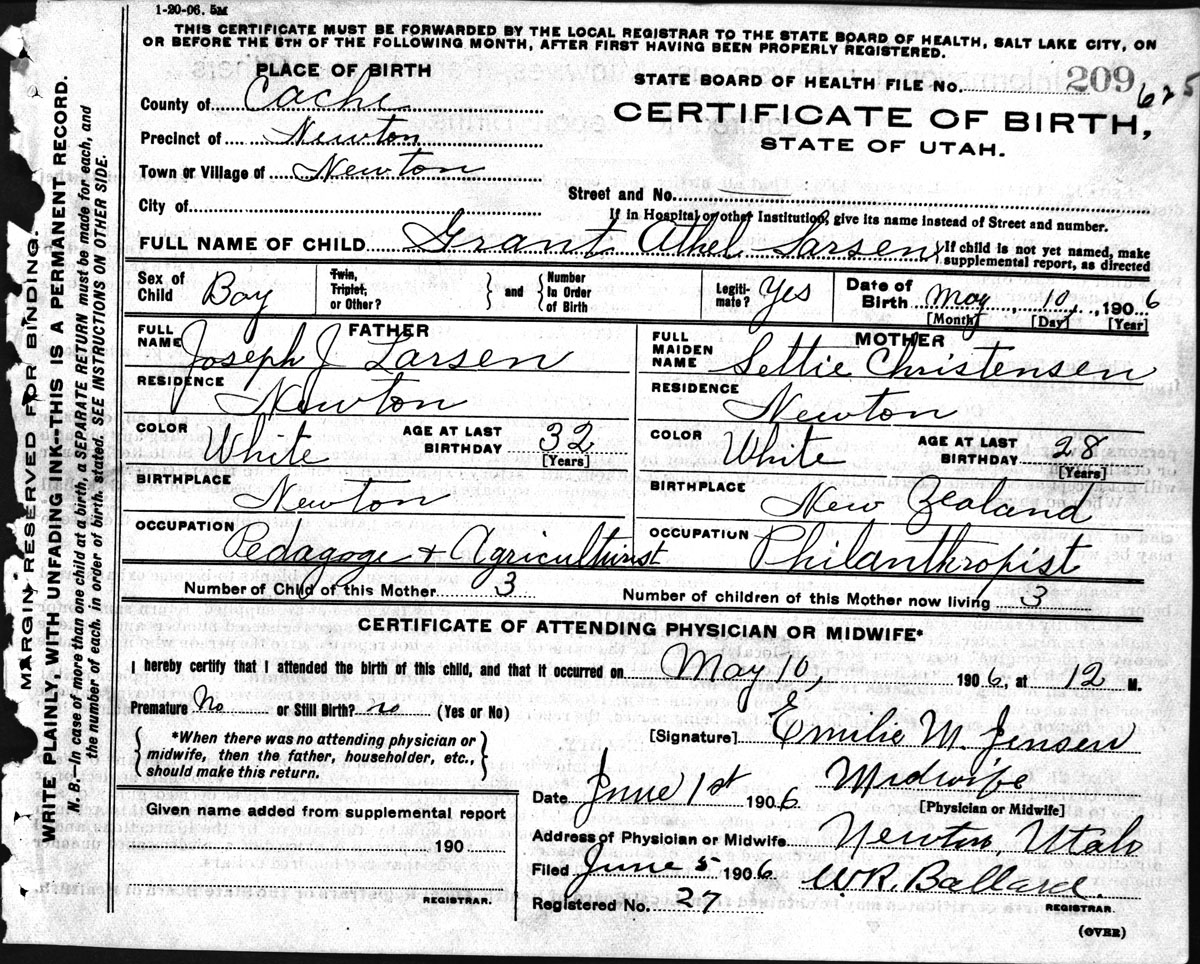 1-20-06. 5M
THIS CERTIFICATE MUST BE FORWARDED BY THE LOCAL REGISTRAR TO THE STATE BOARD OF HEALTH, SALT LAKE CITY, ON
OR BEFORE THE 5TH OF THE FOLLOWING MONTH, AFTER FIRST HAVING BEEN PROPERLY REGISTERED.
MARGIN RESERVED FOR BINDING.
WRITE PLAINLY, WITH UNFADING INK—THIS IS A PERMANENT RECORD.
N. B.—In case of more than one child at a birth, a SEPARATE RETURN must be made for each, and
the number of each, in order of birth, stated. SEE INSTRUCTIONS ON OTHER SIDE.
PLACE OF BIRTH
County of Cache
Precinct of Newton
Town or Village of Newton
City of
STATE BOARD OF HEALTH FILE No. 209 625
CERTIFICATE OF BIRTH,
STATE OF UTAH.
Street and No.
If in Hospital or other Institution, give its name instead of Street and number.
FULL NAME OF CHILD Grant Athel Larsen
If child is not yet named, make
supplemental report, as directed
Sex of Child Boy
Twin, Triplet, or Other?
and
Number In Order of Birth
Legiti-mate? Yes
Date of Birth May 10, 1906
[Month] [Day] [Year]
FATHER
FULL NAME Joseph J Larsen
RESIDENCE Newton
COLOR White AGE AT LAST BIRTHDAY 32
[Years]
BIRTHPLACE Newton
OCCUPATION Pedagoge + Agriculturist
MOTHER
FULL MAIDEN NAME Settie Christensen
RESIDENCE Newton
COLOR White AGE AT LAST BIRTHDAY 28
[Years]
BIRTHPLACE New Zealand
OCCUPATION Philanthropist
Number of Child of this Mother 3
Number of children of this Mother now living 3
CERTIFICATE OF ATTENDING PHYSICIAN OR MIDWIFE*
I hereby certify that I attended the birth of this child, and that it occurred on May 10, 1906 at 12 M.
Premature No or Still Birth? no (Yes or No)
*When there was no attending physician or
midwife, then the father, householder, etc.,
should make this return.
[Signature] Emilie M. Jensen
Date June 1st 1906 Midwife
[Physician or Midwife]
Address of Physician or Midwife Newton, Utah
Given name added from supplemental report
190
REGISTRAR.
Filed June 5 1906 W.R. Ballard
REGISTRAR.
Registered No. 27
(OVER)